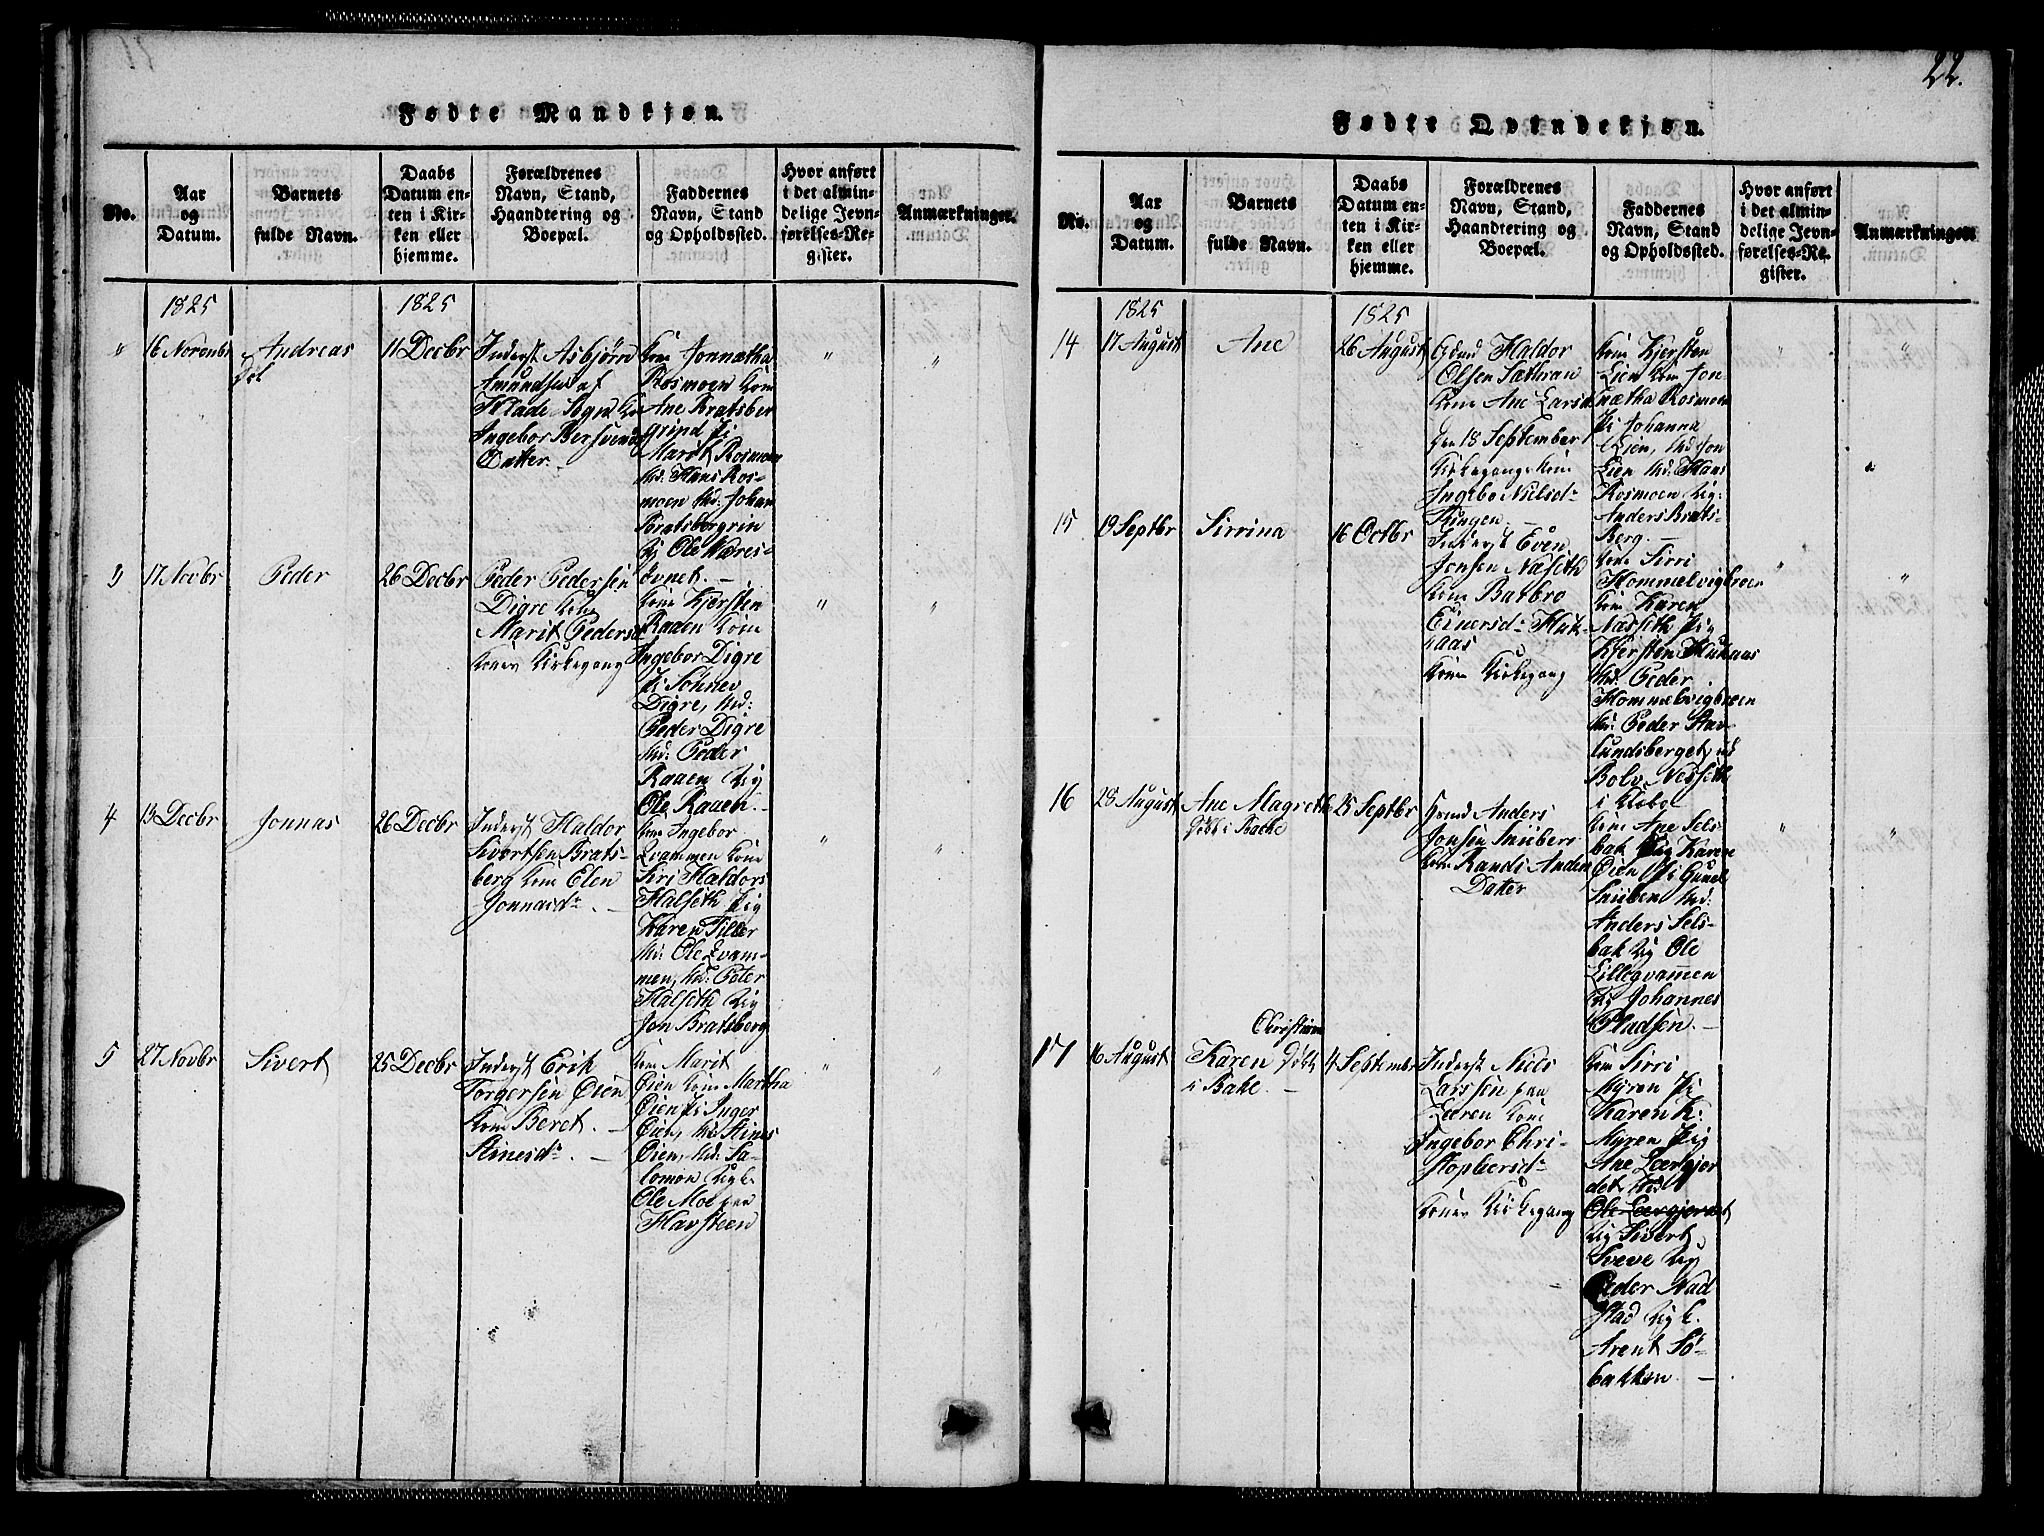 22.
Fødte Mandkjøn.
No.
Aar
og
Datum.
Barnets
fulde Navn.
Daabs
Datum en-
ten i Kir-
ken eller
hjemme.
Forældrenes
Navn, Stand,
Haandtering og
Boepæl.
Faddernes
Navn, Stand
og Opholdssted.
Hvor anført
i det almin-
delige Jevn-
førelses-Re-
gister.
Anmærkninger.
1825
1825
"
16 Novembr
Andreas
11 Decbr
Inderst Asbjørn
Amundsen af
Klade Sogn
Ingebor Bersvends
Datter
Kone Jonnætha
Rosmoen Kone
Ane Bratsber
grind Pi
Marit Rosmoen
Md: Hans Ros-
moen Md: Johan
Bratsbergrin
Ole Næres-
øvnet.
"
"
3
17 Novbr
Peder
26 Decbr
Peder Pedersen
Digre Kone
Marit Pedersd
Konens Kirkegang
Kone Kjersten
Raaen Kone
Ingebor Digre
Pi Søhnev
Digre, Md:
Peder Digre
Md: Peder
Raaen Ug
Ole Raaen.
"
"
4
13 Decbr
Jonnas
26 Decbr
Inderst Haldor
Sivertsen Brats-
berg Kone Elen
Jonnasdr
Kone Ingebor
Qvammen Kone
Siri Haldors
Halseth Pig
Karen Tiller
Md: Ole Qvam-
men, Md: Peter
Halseth Ug
Jon Bratsberg
"
"
5
27 Novbr
Sivert
25 Decbr
Inderst Erik
Torgersen Øien
Kone Beret
Stinesdr
Kone Marit
Øien Kone Martha
Øien Pi Inger
Øien, Md: Stines
Øien, Md: Sa-
lomon Ungk.
Ole Moe paa
Havsteen
"
"
Fødte Qvindekjøn.
No.
Aar
og
Datum.
Barnets
fulde Navn.
Daabs
Datum en-
ten i Kir-
ken eller
hjemme.
Forældrenes
Navn, Stand,
Haandtering og
Boepæl.
Faddernes
Navn, Stand
og Opholdssted.
Hvor anført
i det almin-
delige Jevn-
førelses-Re-
gister.
Anmærkninger.
1825
1825
14
17 August
Ane
26 August
Haldor
Olsen Sæthran
Kone Ane Larsd
den 18 September
Kirkegangs Kone
Ingebo Nielsdr
Ringen
Kone Kjersten
Lien Kone Jon-
nætha Rosmoen
Pi Johanna
Lien, Md: Jon
Lien Md: Hans
Rosmoen Ug:
Anders Brats-
Berg.
"
"
15
19 Septbr
Sirrina
16 Octbr
Inderst Even
Jonsen Næseth
Kone Barbro
Einersdr Huk-
aas
Konen Kirkegang
Kone Sirri
Hommelvigbroen
Kone Karen
Næsseth Pig
Kjersten Hukaas
Md: Peder
Hommelvigbroen
Md: Peder Hav-
lundsberget, Md
Bolv Nesseth
i Klæbo
"
"
16
28 August
Ane Magreth
Døbt i Bakke
25 Septbr
Anders
Jonsen Sniiberr
Kone Randi Anders
Datter
Kone Ane Sels-
bak Pig Karen
Øien Pi Gunel
Sniiben Md:
Anders Sels-
bak Ug Ole
Lillegvammen
Ug Johannes
Pladsen.
"
"
17
16 August
Christianna
Karen Døbt
i Bake
4 September
Inderst Niels
Larssen paa
Leeren Kone
Ingebor Chri-
stophersdr
Konens Kirkegang
Kone Sirri
Myren Pi
Karen K:
Myren Pig
Ane Leergjor
det Md
Ole Leergjordet
Ug Sivert
Sveve Ug
Peder Nad
stad Ug k.
Arent Sø-
bakken.